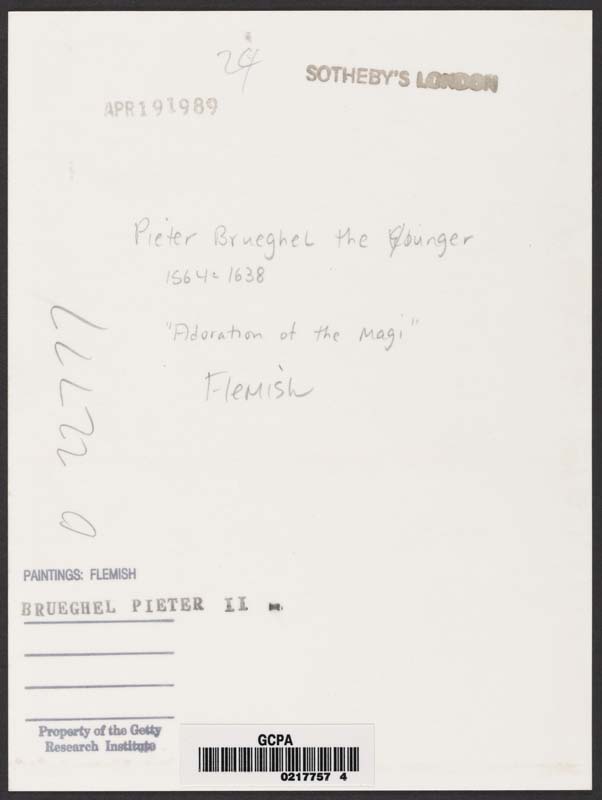 24
SOTHEBY'S LONDON
APR 19 1989
Pieter Brueghel the Younger
1564-1638
"Adoration of the Magi"
Flemish
0 22777
PAINTINGS: FLEMISH
BRUEGHEL PIETER II
Property of the Getty
Research Institute
GCPA
0217757 4